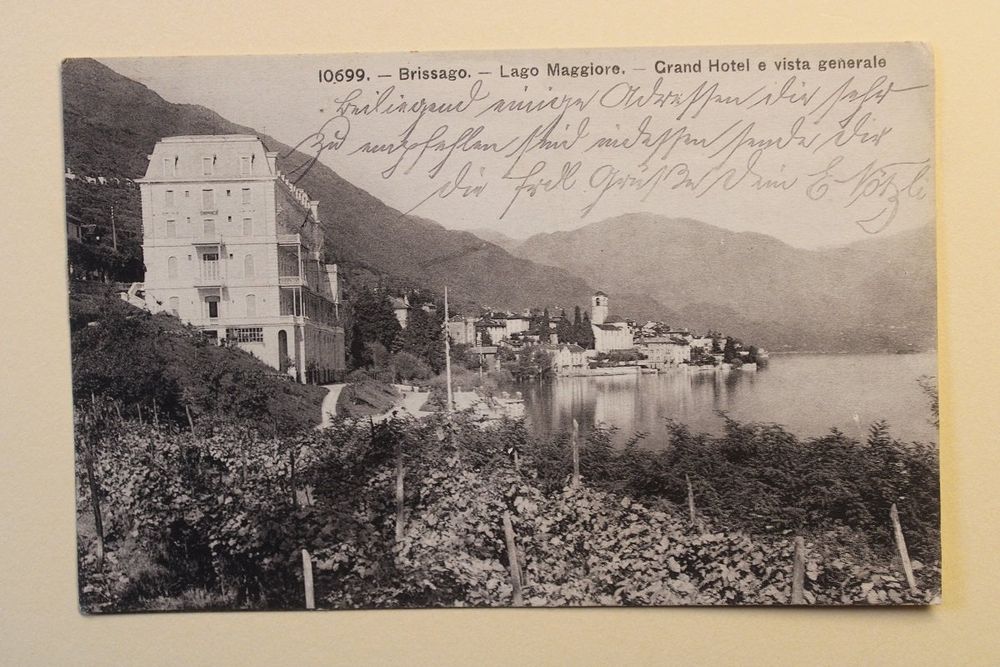 10699. — Brissago. — Lago Maggiore. — Grand Hotel e vista generale
Beiliegend einige Adressen die sehr
zu empfehlen sind indessen sende Dir
die frdl Grüße Dein E Nötzli